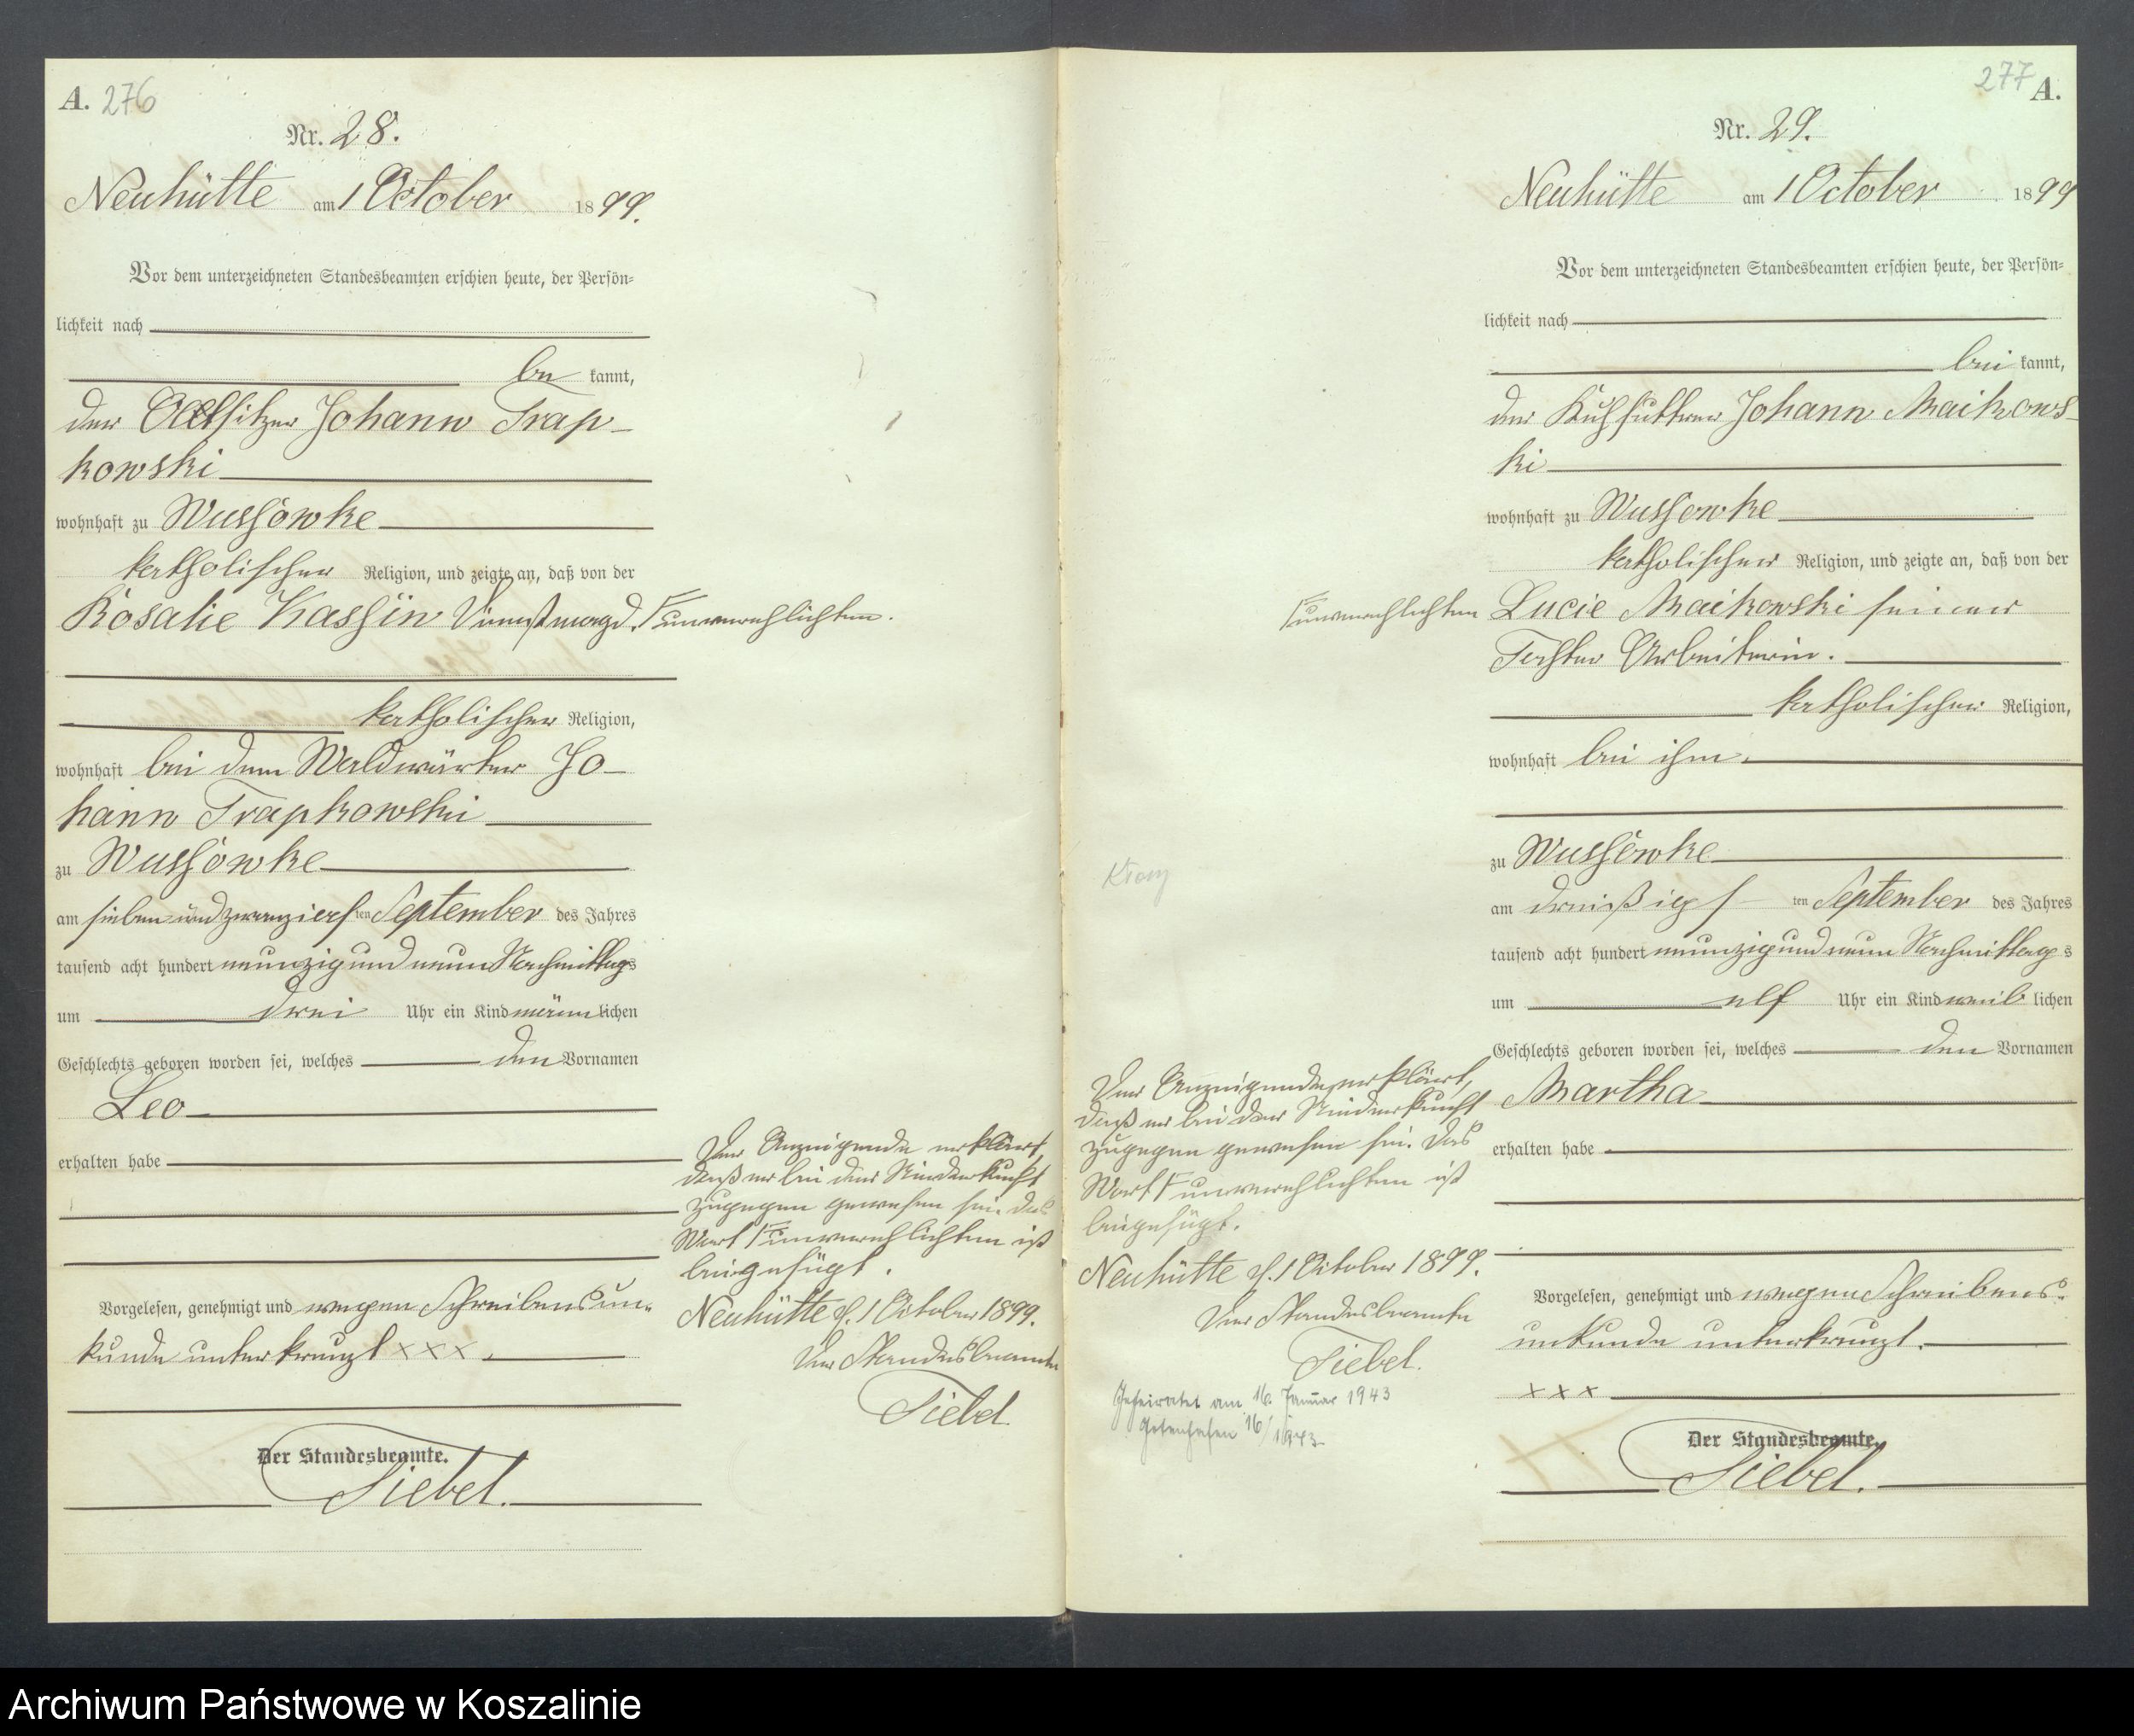 A. 276
Nr. 28.
Neuhütte am 1 October 1899.
Vor dem unterzeichneten Standesbeamten erschien heute, der Persön-
lichkeit nach
be kannt,
der Altsitzer Johann Trap-
kowski
wohnhaft zu Wussowke
katholischer Religion, und zeigte an, daß von der
Rosalie Kassin Dienstmagd, Γ unverehlichten.
katholischer Religion,
wohnhaft bei dem Waldwärter Jo-
hann Trapkowski
zu Wussowke
am sieben und zwanzigsten September des Jahres
tausend acht hundert neunzig und neun Nachmittags
um drei Uhr ein Kind männlichen
Geschlechts geboren worden sei, welches den Vornamen
Leo
erhalten habe
Der Anzeigende erklärt,
daß er bei der Niederkunft
zugegen gewesen sei. Das
Wort Γ unverehlichten ist
beigefügt.
Neuhütte d. 1 October 1899.
Der Standesbeamte
Siebel.
Vorgelesen, genehmigt und wegen Schreibensun-
kunde unterkreuzt XXX.
Der Standesbeamte.
Siebel.
277 A.
Nr. 29.
Neuhütte am 1 October 1899
Vor dem unterzeichneten Standesbeamten erschien heute, der Persön-
lichkeit nach
be kannt,
der Kuhfütterer Johann Maikows-
ki
wohnhaft zu Wussowke
katholischer Religion, und zeigte an, daß von der
Γ unverehlichten Lucie Maikowski seiner
Tochter Arbeiterin.
katholischer Religion,
wohnhaft bei ihm
zu Wussowke
am dreißigsten September des Jahres
tausend acht hundert neunzig und neun Nachmittags
um elf Uhr ein Kind weiblichen
Geschlechts geboren worden sei, welches den Vornamen
Martha
erhalten habe
Der Anzeigende erklärt,
daß er bei der Niederkunft
zugegen gewesen sei. Das
Wort Γ unverehlichten ist
beigefügt.
Neuhütte d. 1 October 1899.
Der Standesbeamte
Siebel.
Geheiratet am 16. Januar 1943
Gotenhafen 16/1943
Vorgelesen, genehmigt und wegen Schreibens-
unkunde unterkreuzt.
x x x
Der Standesbeamte.
Siebel.
Archiwum Państwowe w Koszalinie